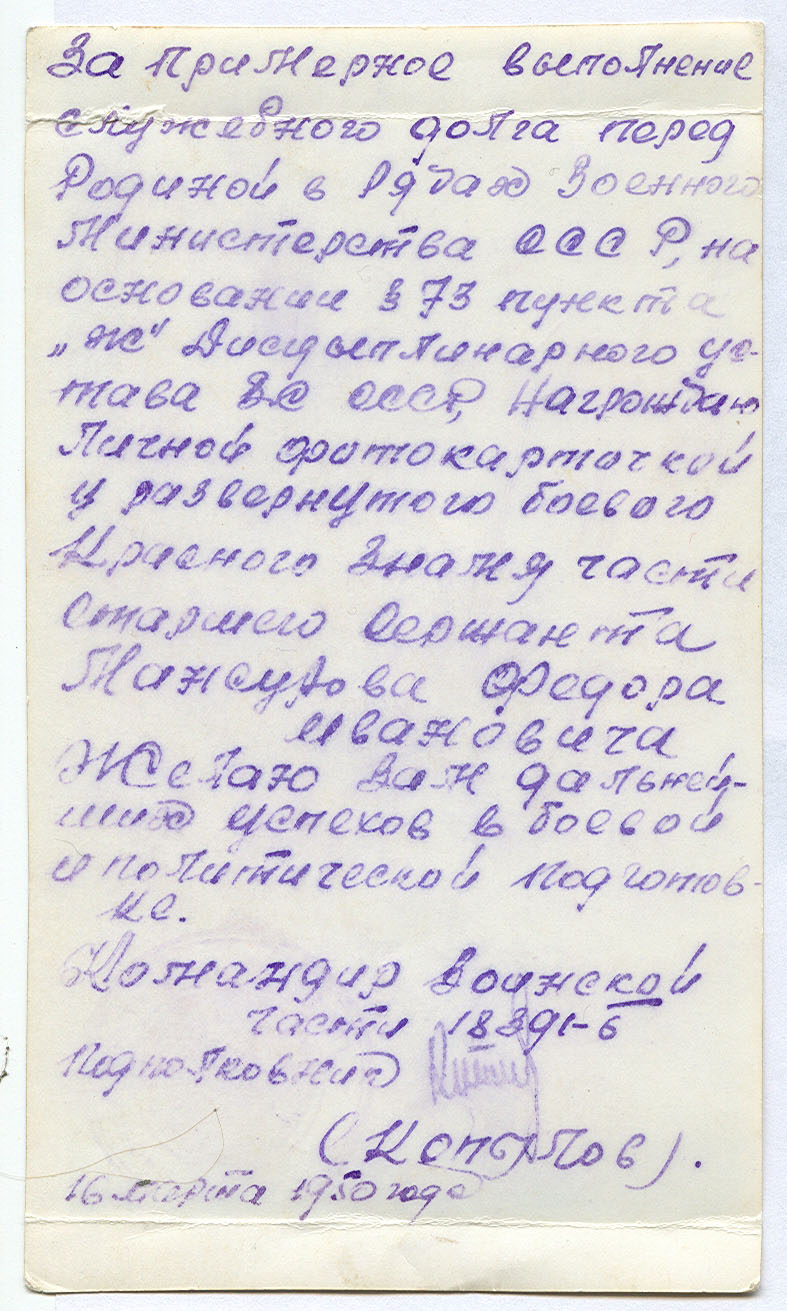 За примерное выполнение
служебного долга перед
Родиной в рядах Военного
Министерства ССС Р, на
основании § 73 пункта
„ж" Дисцыплинарного ус-
тава ВС СССР, Награждаю
личной фотокарточкой
у развернутого боевого
Красного Знамя части
Старшего Сержанта
Федора
Ивановича
Желаю Вам дальней-
ших успехов в боевой
и политической подготов-
ке.
Командир Воинской
части 18391-б
Подполковник
(Копылов).
16 марта 1950 года